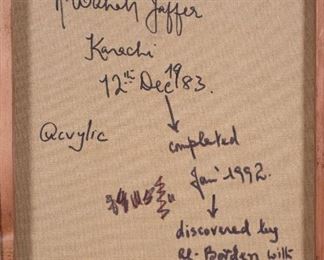 A. Wahab Jaffer
Karachi
12th Dec 1983.
Acrylic
completed
Jan' 1992.
discovered by
Borden with